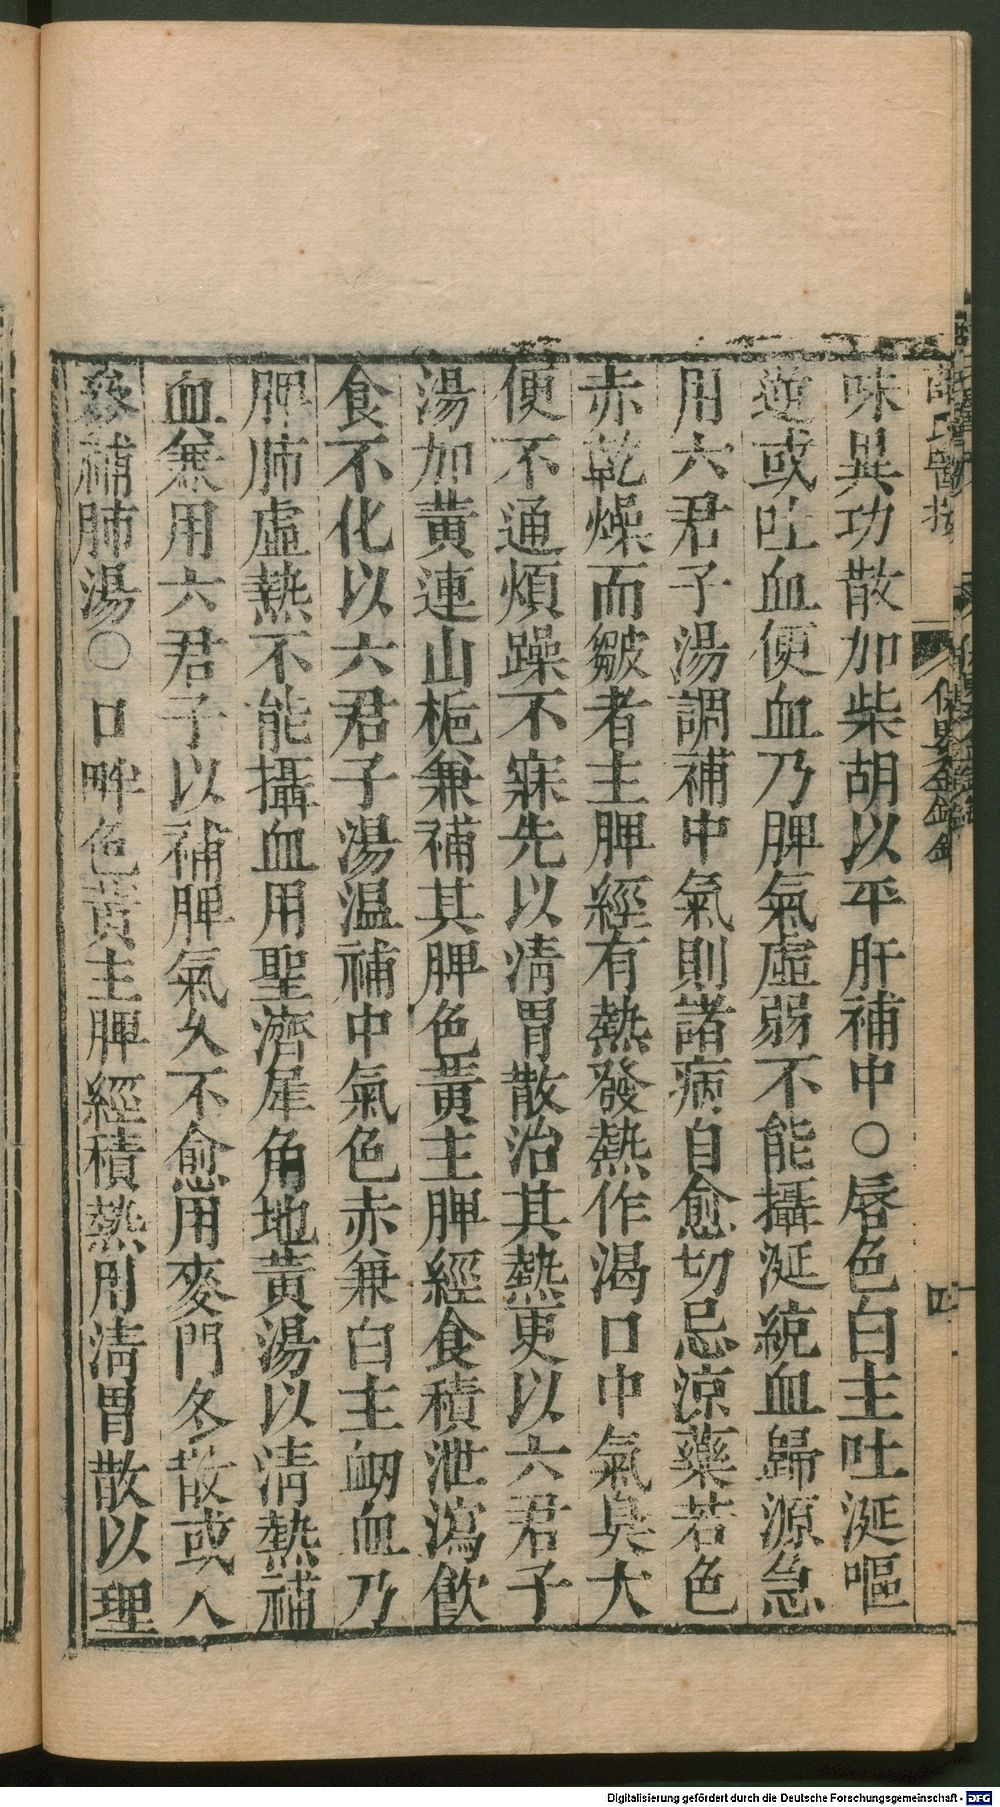 味異功散加柴胡以平肝補中○唇色白主吐涎嘔
逆或吐血便血乃脾氣虛弱不能攝涎統血歸源急
用六君子湯調補中氣則諸病自愈切忌涼藥若色
赤乾燥而皺者主脾經有熱發熱作渴口中氣臭大
便不通煩躁不寐先以淸胃散治其熱更以六君子
湯加黃連山梔兼補其脾色黃主脾經食積泄瀉飮
食不化以六君子湯温補中氣色赤兼白主衂血乃
脾肺虛熱不能攝血用聖濟犀角地黃湯以淸熱補
血兼用六君子以補脾氣久不愈用麥門冬散或人
參補肺湯○口畔色黃主脾經積熱用淸胃散以理
薛氏醫按
保嬰金鏡錄
四
Digitalisierung gefördert durch die Deutsche Forschungsgemeinschaft - DFG